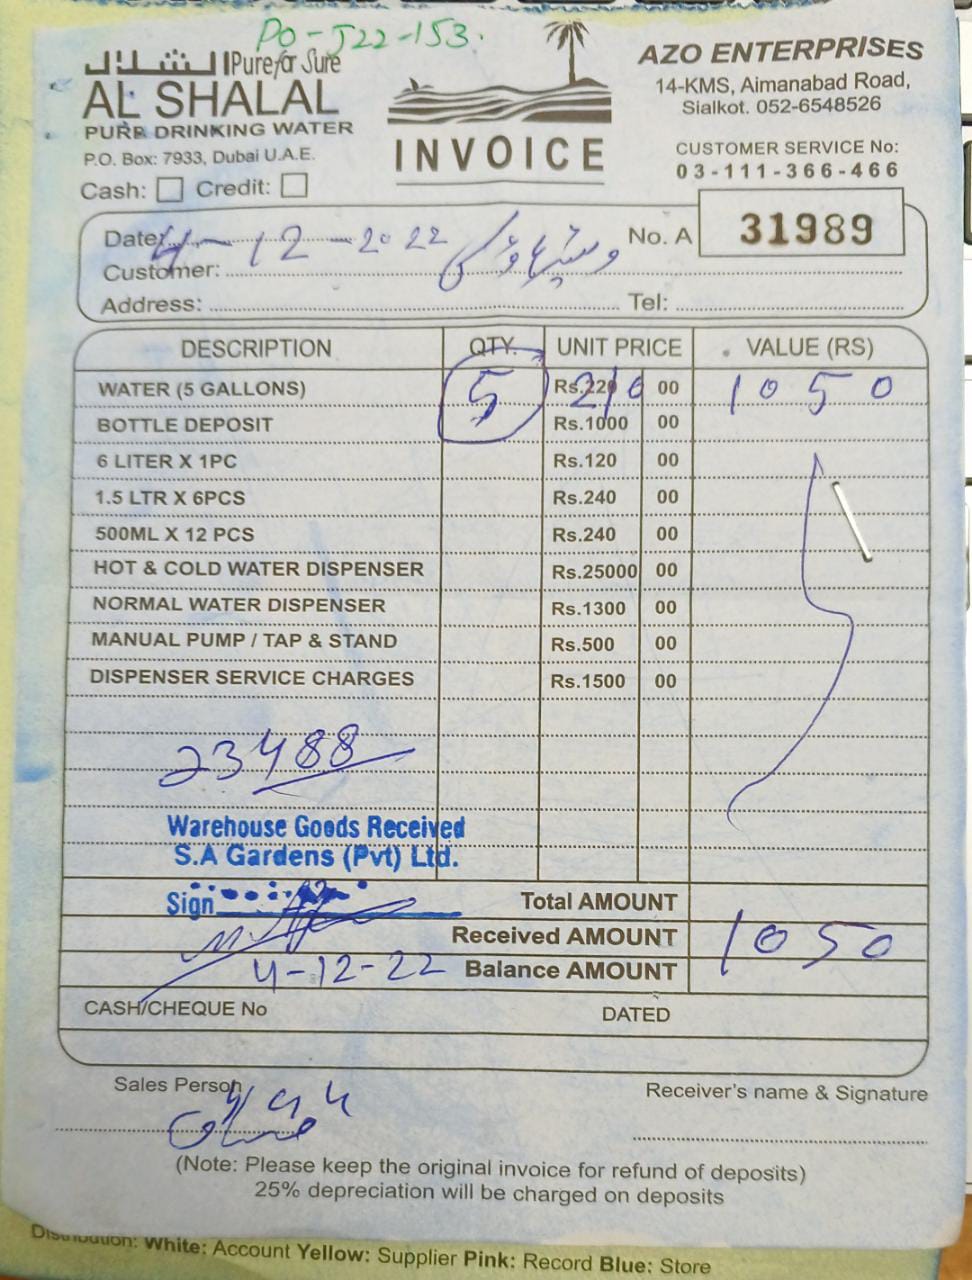 PO-J22-153.
الشلال Pure for Sure
AL SHALAL
PURE DRINKING WATER
P.O. Box: 7933, Dubai U.A.E.
Cash: Credit:
INVOICE
AZO ENTERPRISES
14-KMS, Aimanabad Road,
Sialkot. 052-6548526
CUSTOMER SERVICE No:
03-111-366-466
Date: 4-12-2022 No. A 31989
Customer:
Address: Tel:
DESCRIPTION QTY. UNIT PRICE VALUE (RS)
WATER (5 GALLONS) 5 Rs.220 210 00 1050
BOTTLE DEPOSIT Rs.1000 00
6 LITER X 1PC Rs.120 00
1.5 LTR X 6PCS Rs.240 00
500ML X 12 PCS Rs.240 00
HOT & COLD WATER DISPENSER Rs.25000 00
NORMAL WATER DISPENSER Rs.1300 00
MANUAL PUMP / TAP & STAND Rs.500 00
DISPENSER SERVICE CHARGES Rs.1500 00
23488
Warehouse Goods Received
S.A Gardens (Pvt) Ltd.
Sign
Total AMOUNT
Received AMOUNT 1050
4-12-22 Balance AMOUNT
CASH/CHEQUE No DATED
Sales Person Receiver's name & Signature
(Note: Please keep the original invoice for refund of deposits)
25% depreciation will be charged on deposits
Distribution: White: Account Yellow: Supplier Pink: Record Blue: Store